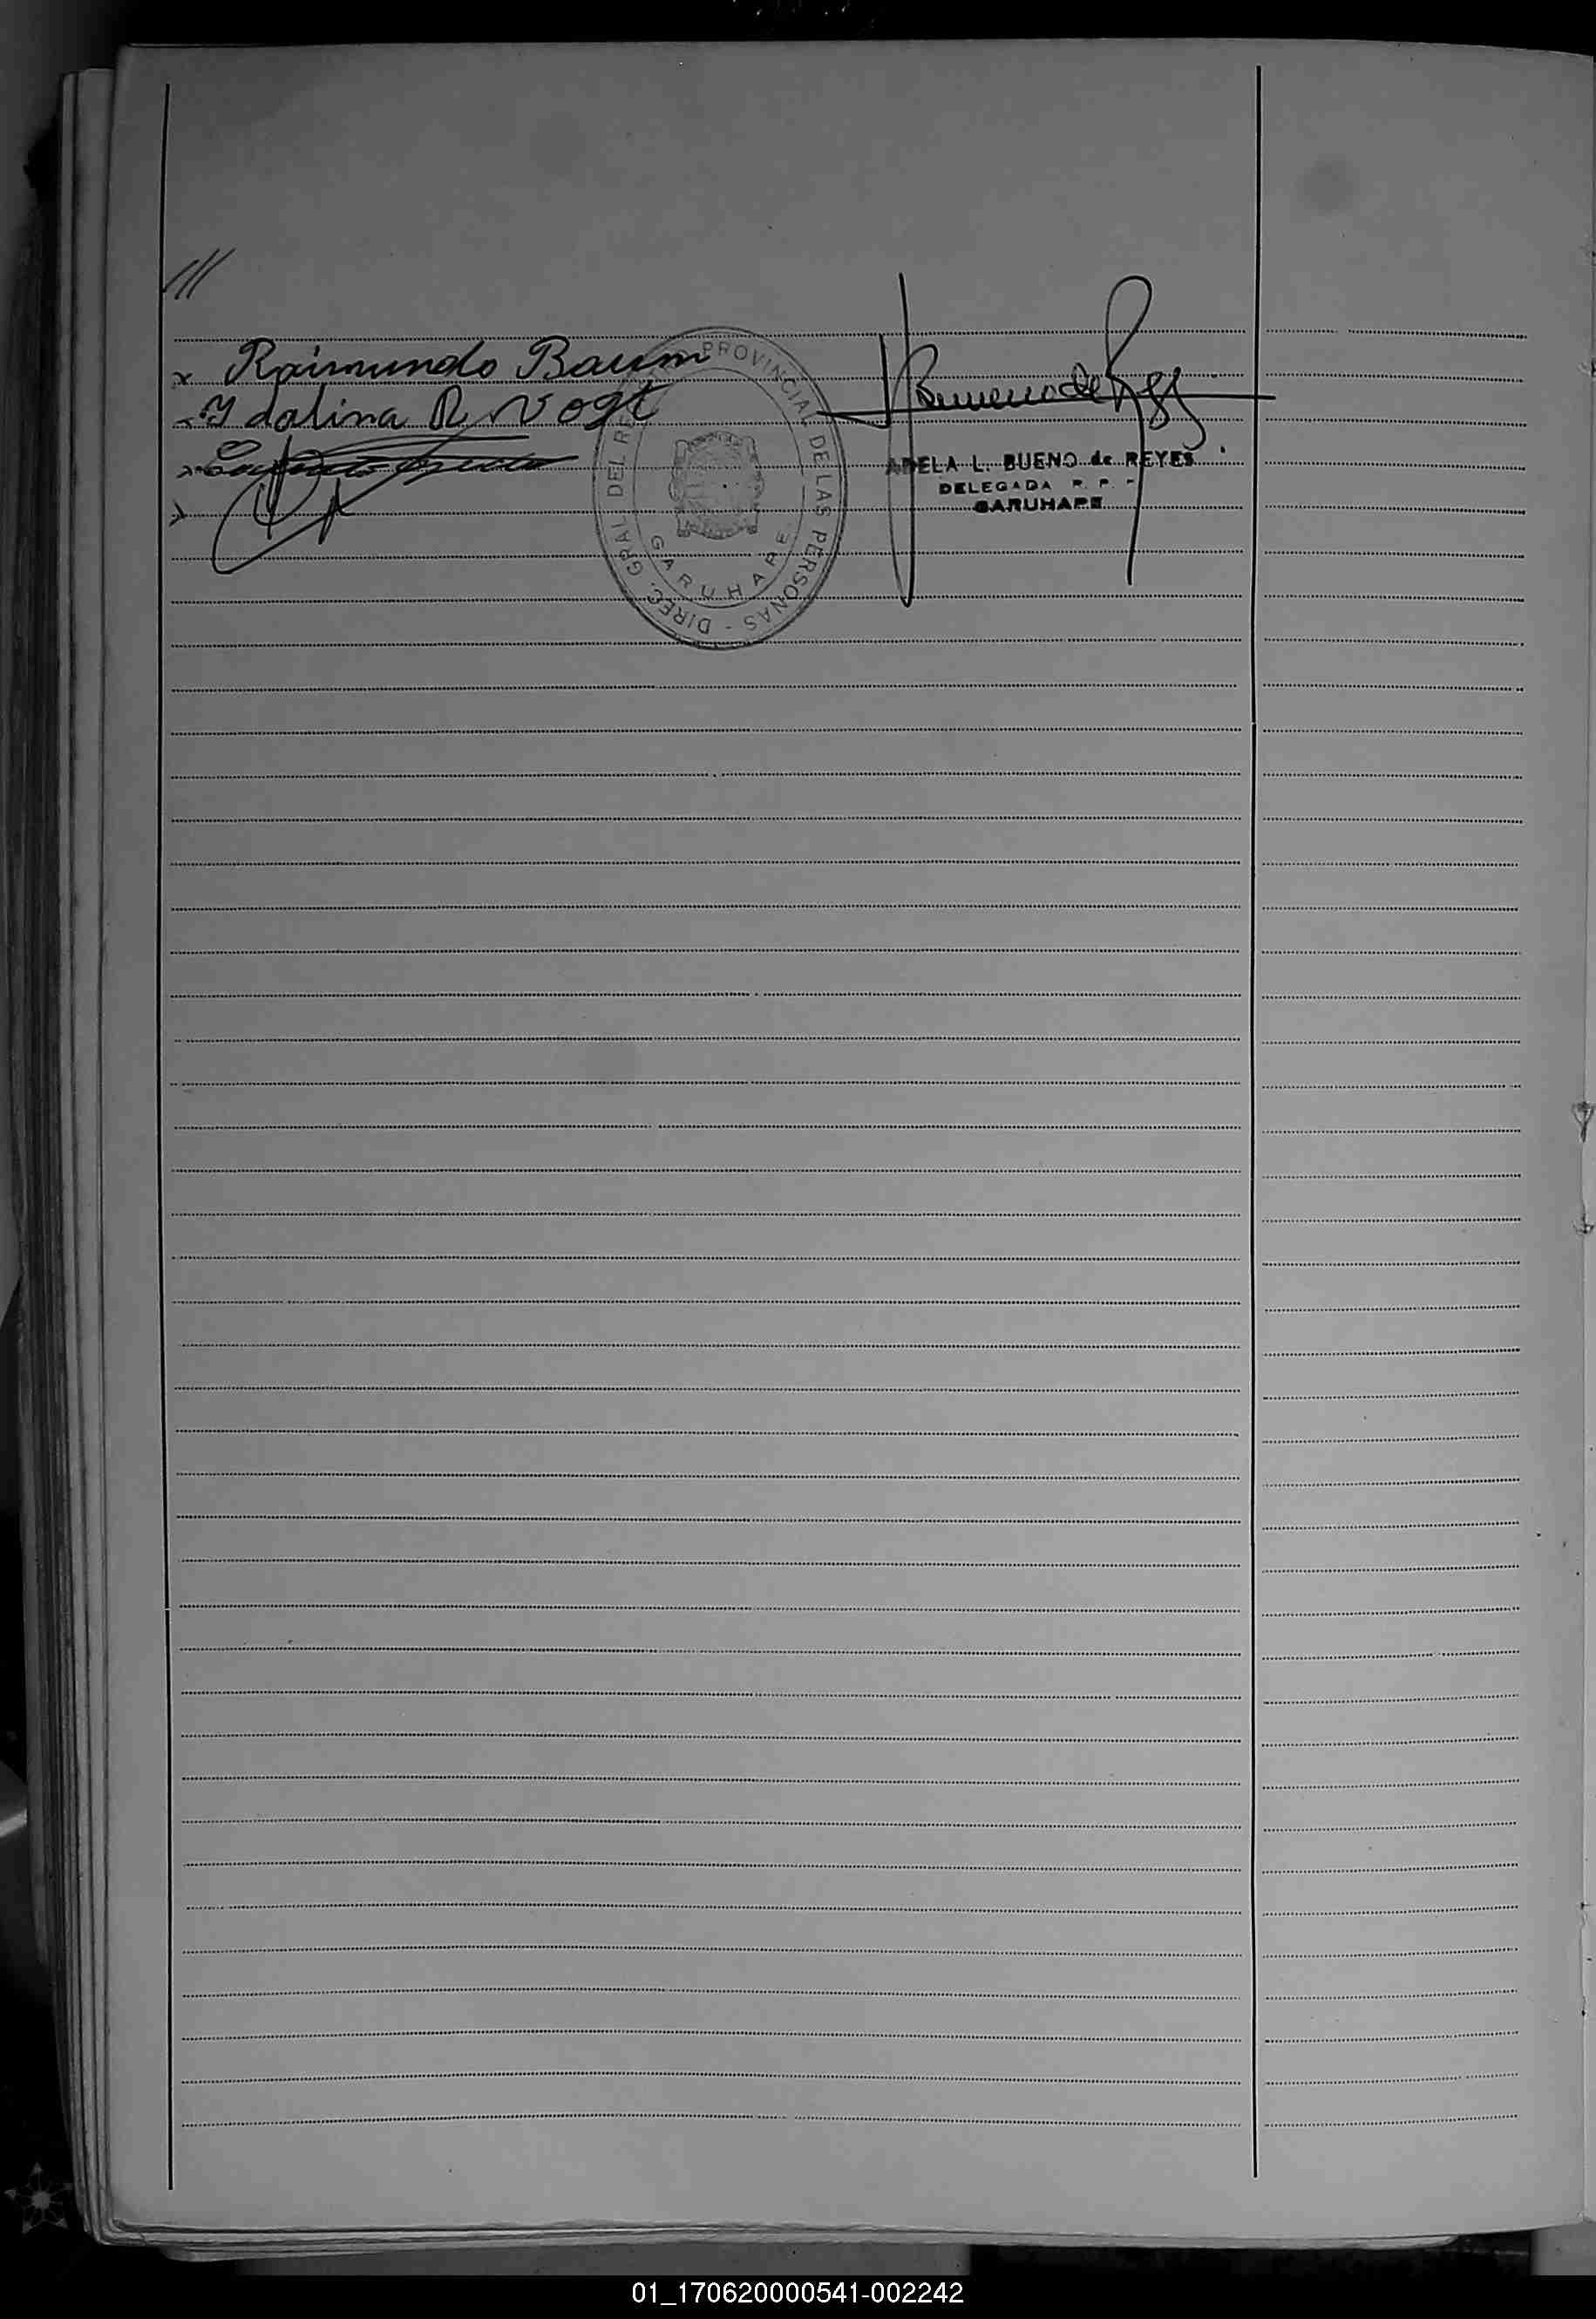 ///
x Raimundo Baum
x Idalina R Vogt
x
x
Bueno de Reyes
ADELA L. BUENO de REYES
DELEGADA R. P. -
GARUHAPE
PROVINCIAL DE LAS PERSONAS - DIREC. GRAL. DEL
GARUHAPE
01_170620000541-002242